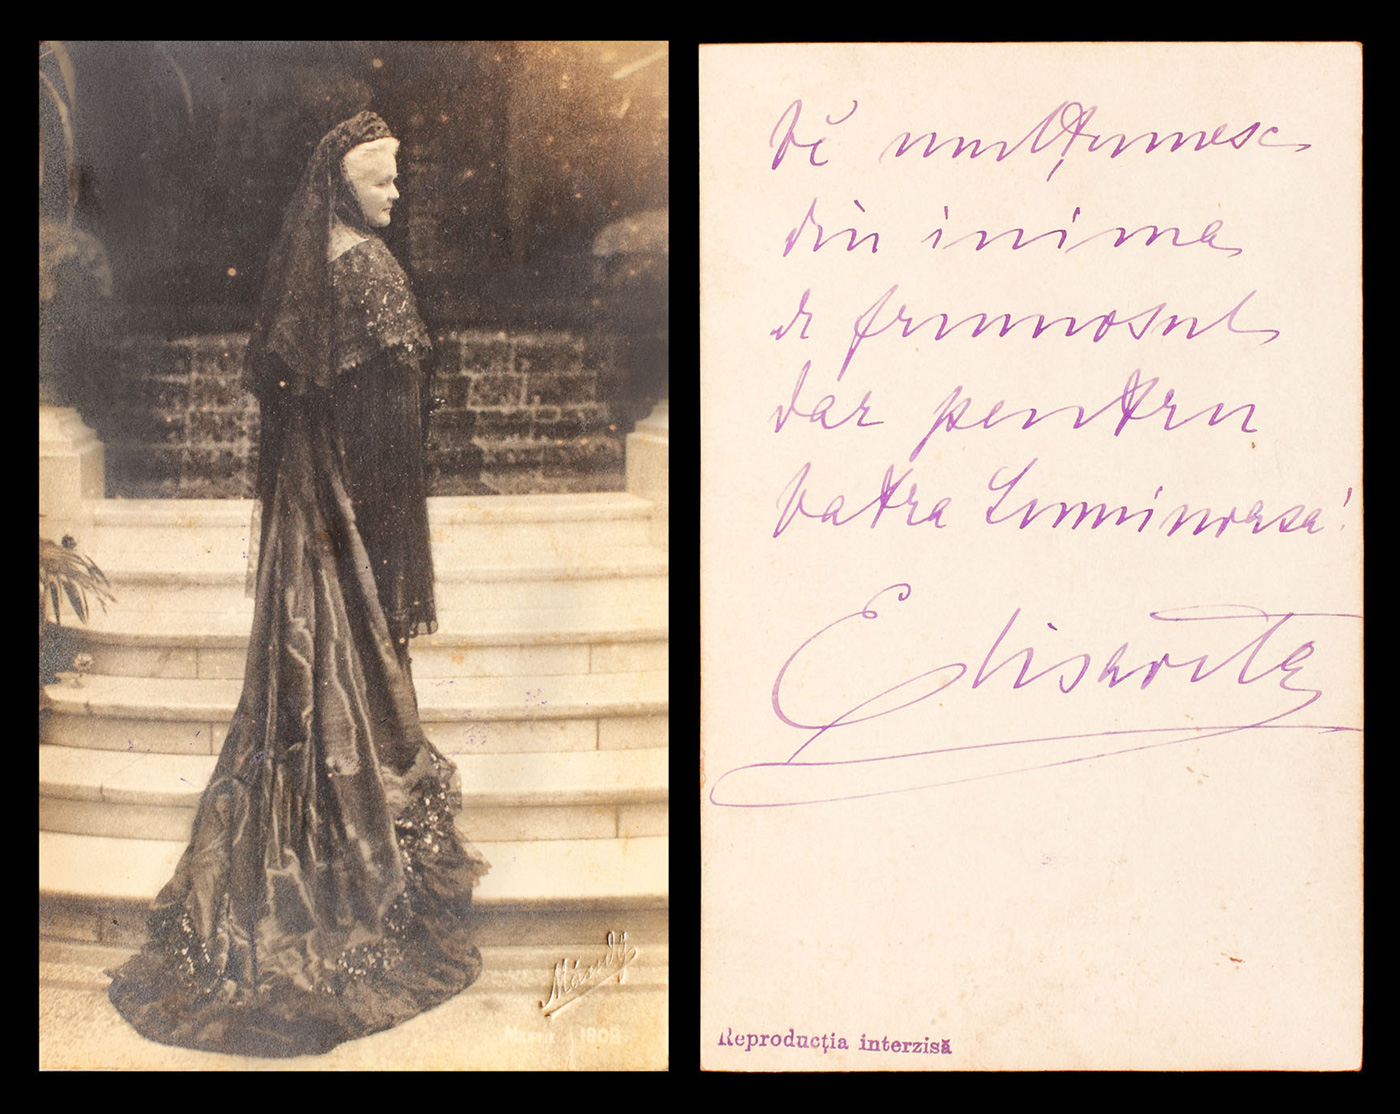 Mandy
1909
Vĕ mulțumesc
din inima
de frumosul
dar pentru
Vatra Luminoasa!
Elisaveta
Reproducția interzisă